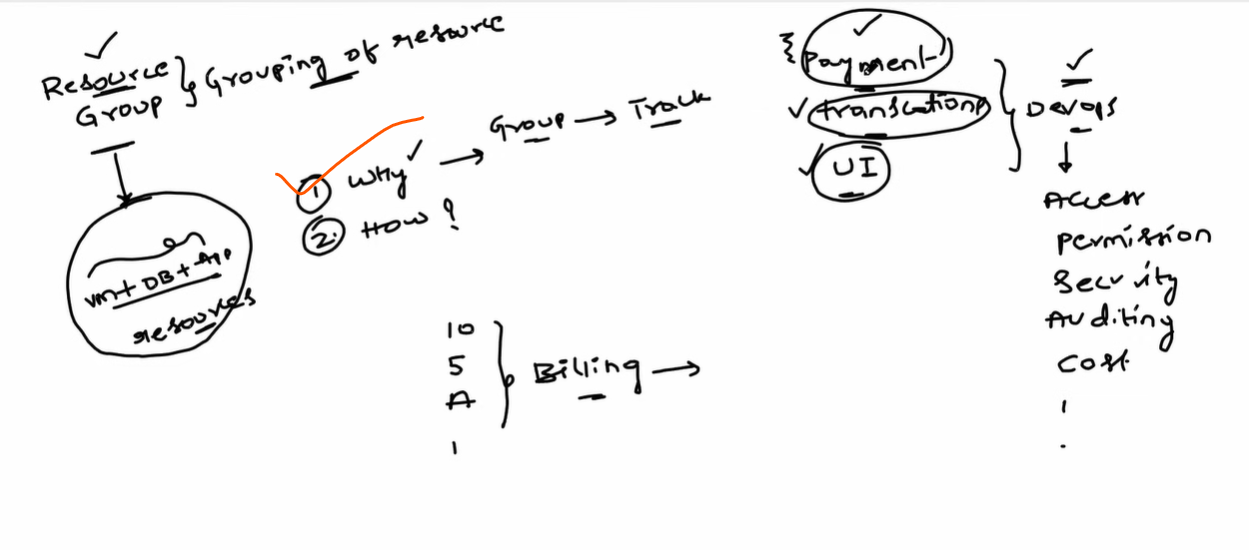 Resource
Group
Grouping of resource
vm + DB + App
resources
1 Why
2. How ?
Group → Track
10
5
A
1
Billing →
Payment
transcations
UI
Devops
Access
Permission
Security
Auditing
Cost